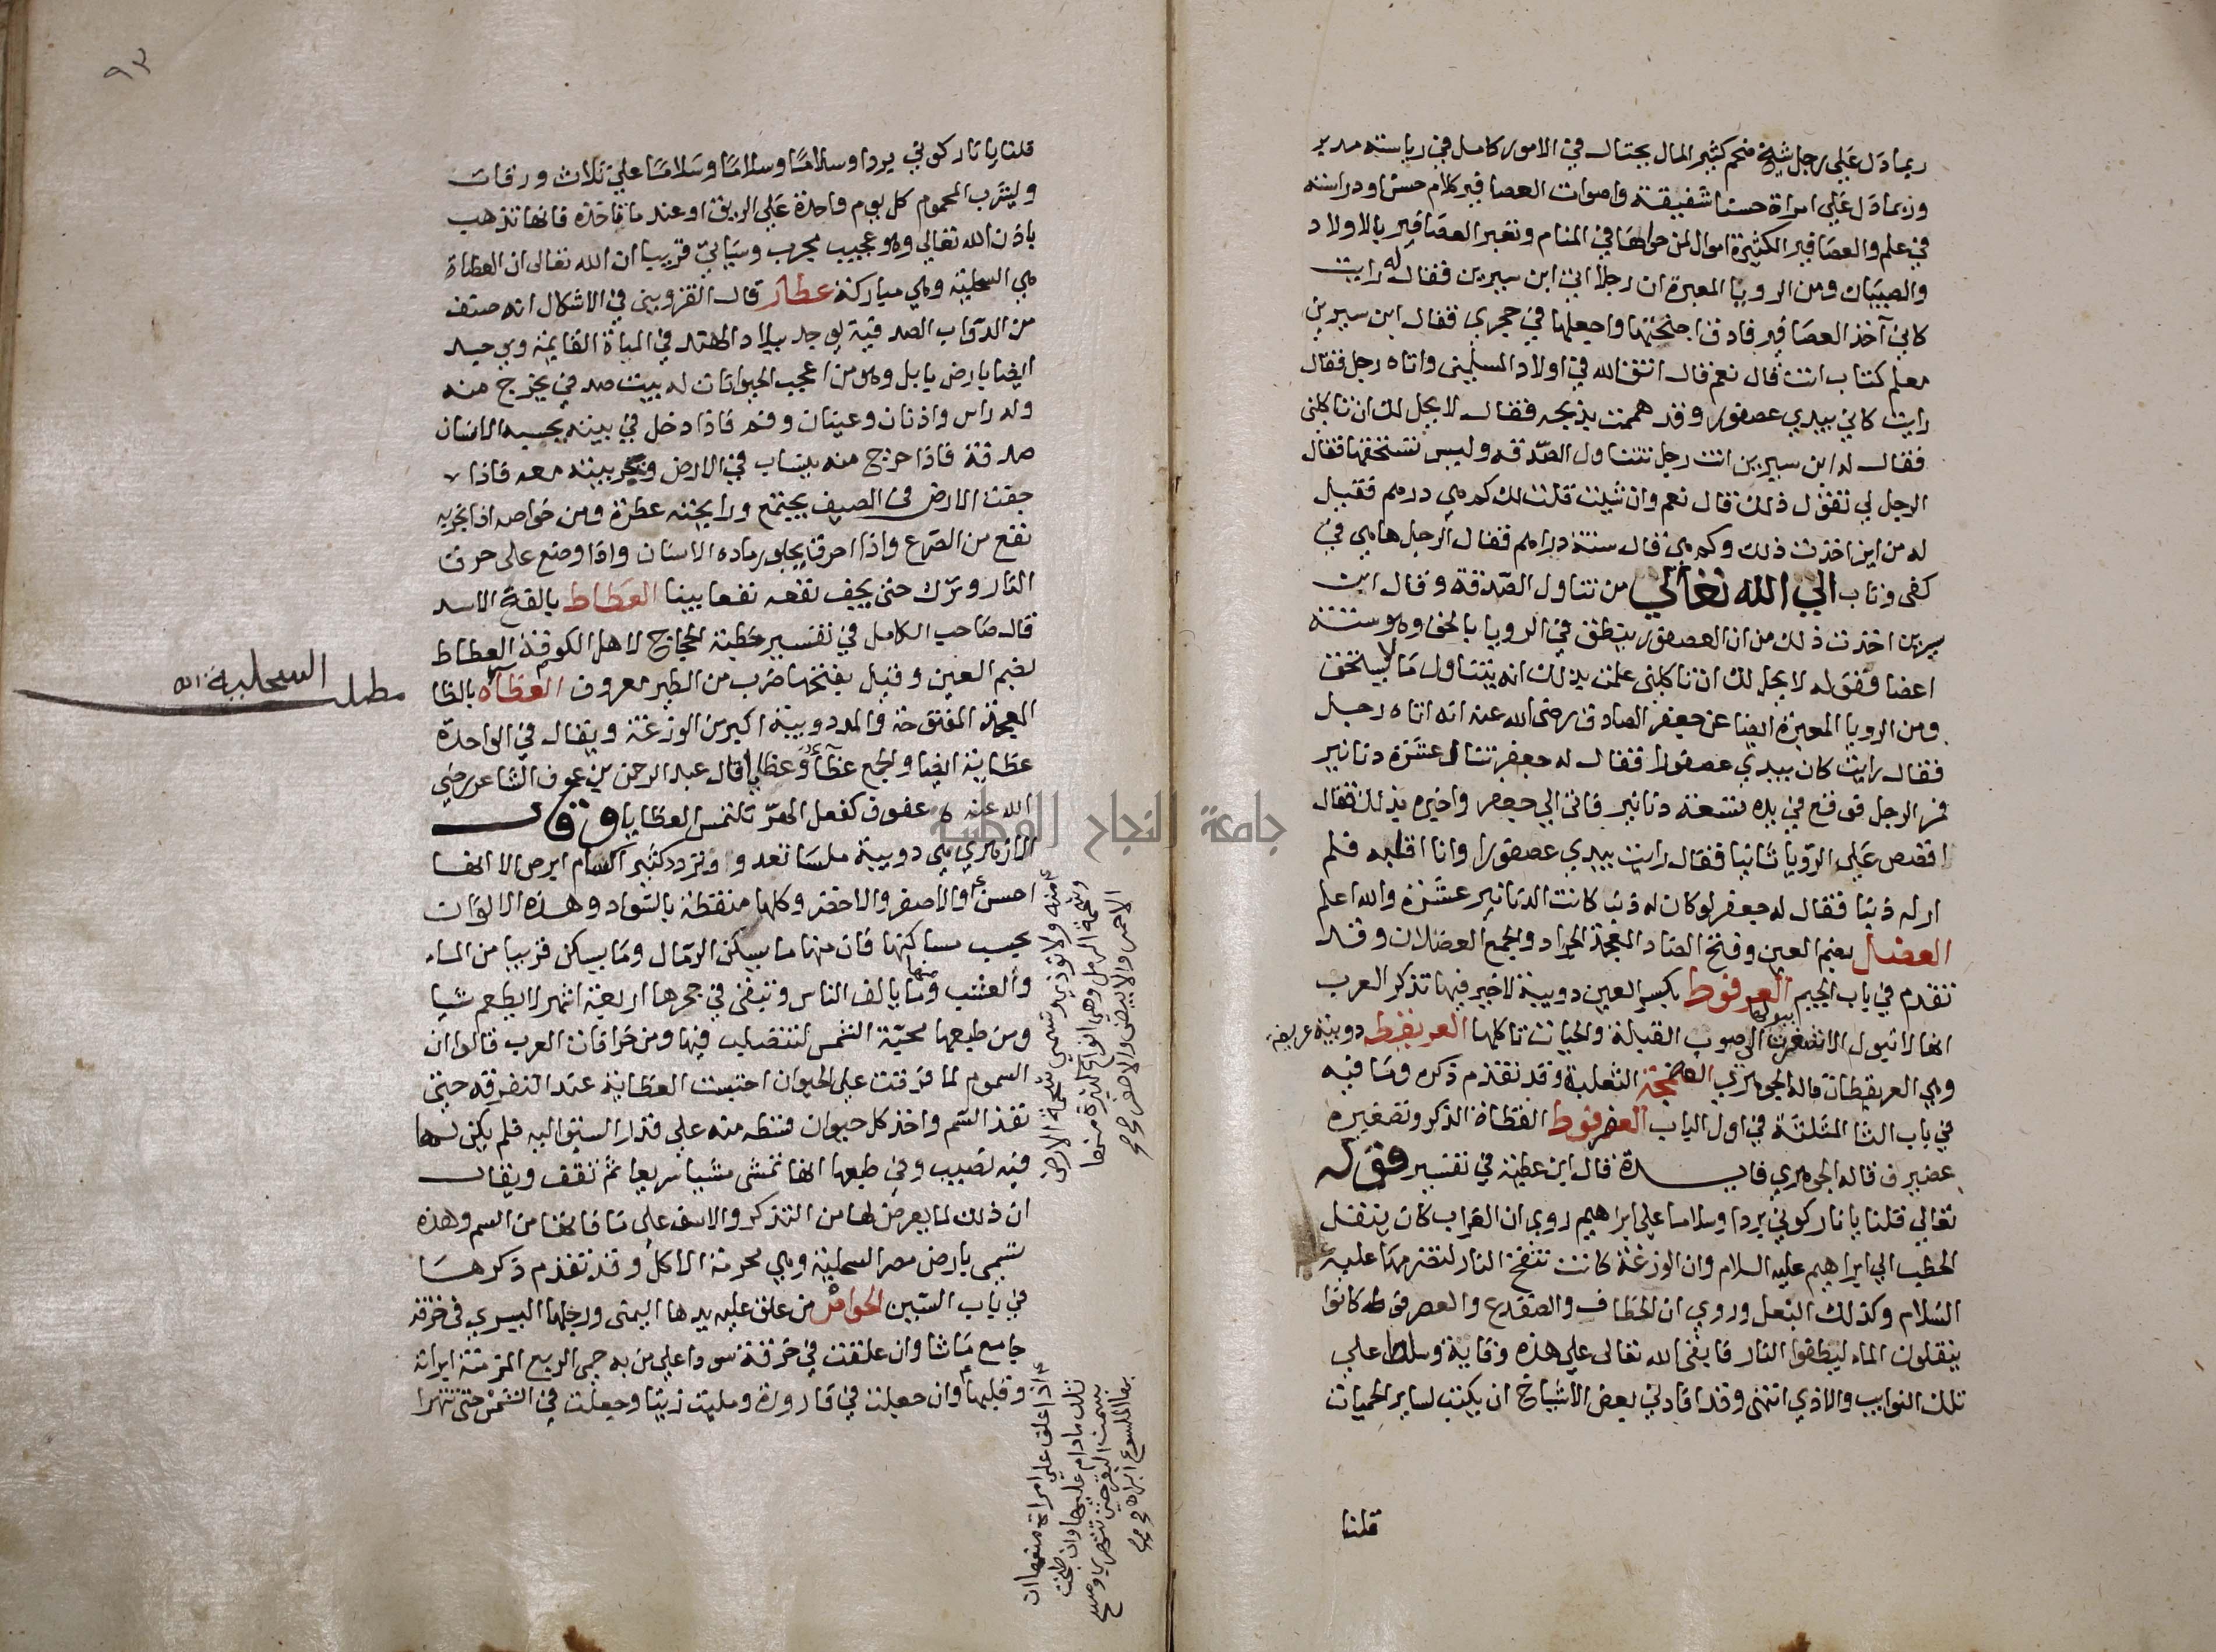 ربما دل علي رجل شيخ ضخم كثير المال يحتال في الامور كامل في رياسته مدبر
وربما دل علي امراة حسنا شفيقة واصوات العصافير كلام حسن او دراسته
في علم والعصافير الكثيرة اموال لمن حواها في المنام وتعبر العصافير بالاولاد
والصبيان ومن الرويا المعبرة ان رجلا اتي ابن سيرين فقال له رايت
كاني آخذ العصافير فادق اجنحتها واجعلها في حجري فقال ابن سيرين
معلم كتاب انت قال نعم قال اتق الله في اولاد المسلمين واتاه رجل فقال
رايت كاني بيدي عصفور وقد هممت بذبحه فقال لا يحل لك ان تاكلني
فقال له ابن سيرين انت رجل تتناول الصدقة وليس تستحقها فقال
الرجل لي تقول ذلك قال نعم وان شيت قلت لك كم هي درهم فقيل
له من اين اخذت ذلك وكم هي قال ستة دراهم فقال الرجل ها هي في
كفي وتاب الي الله تعالي من تناول الصدقة وقال ابن
سيرين اخذت ذلك من ان العصفور ينطق في الرويا بالحق وهو ستة
اعضا فقوله لا يحل لك ان تاكلني علمت بذلك انه يتناول ما لا يستحق
ومن الرويا المعبرة ايضا عن جعفر الصادق رضي الله عنه انه اتاه رجل
فقال رايت كان بيدي عصفورا فقال له جعفر تنال عشرة دنانير
فمر الرجل فوقع في يده تسعة دنانير فاتي الي جعفر واخبره بذلك فقال
اقصص علي الرويا ثانيا فقال رايت بيدي عصفورا وانا اقلبه فلم
ار له ذنبا فقال له جعفر لو كان له ذنب كانت الدنانير عشرة والله اعلم
العضل بضم العين وفتح الضاد المعجمة الجراد والجمع العضلان وقد
تقدم في باب الجيم العرفوط بكسر العين دويبة لا خير فيها تذكر العرب
انها لا تبول الا شغرت ببولها الي صوب القبلة والحيات تاكلها العريقطة دويبة عريضة
وهي العريقطان قاله الجوهري العضمجة الثعلبة وقد تقدم ذكره وما فيه
في باب الثا المثلثة في اول الباب العضرفوط العظاة الذكر وتصغيره
عضيرف قاله الجوهري فايدة قال ابن عطية في تفسير قوله
تعالي قلنا يا نار كوني بردا وسلاما علي ابراهيم روي ان الغراب كان ينقل
الحطب الي ابراهيم عليه السلام وان الوزغة كانت تنفخ النار لتضرمها عليه
السلام وكذلك البغل وروي ان الخطاف والضفدع والعضرفوطه كانوا
ينقلون الماء ليطفوا النار فابقي الله تعالي علي هذه وقاية وسلط علي
تلك النوايب والاذي انتهي وقد افادني بعض الاشياخ ان يكتب لساير الحميات
قلنا
٩٣
قلنا يا نار كوني بردا وسلاما وسلاما وسلاما علي ثلاث ورقات
ويشرب المحموم كل يوم واحدة علي الريق او عند ما تاخذه فانها تذهب
باذن الله تعالي وهو عجيب مجرب وسياتي قريبا ان الله تعالي ان العظاة
هي السحلية وهي مباركة عطار قال القزويني في الاشكال انه صنف
من الدواب الصدفية يوجد ببلاد الهند في المياة القايمة ويوجد
ايضا بارض بابل وهو من اعجب الحيوانات له بيت صدفي يخرج منه
وله راس واذنان وعينان وفم فاذا دخل في بيته يحسبه الانسان
صدفة فاذا خرج منه ينساب في الارض ويجر بيته معه فاذا
جفت الارض في الصيف يجتمع ورايحته عطرة ومن خواصه اذا بخر به
نفع من الصرع واذا احرق يجلو رماده الاسنان واذا وضع علي حرق
النار وترك حتي يجف نفعه نفعا بينا العطاط بالفتح الاسد
قال صاحب الكامل في تفسير خطبة الحجاج لاهل الكوفة العطاط
بضم العين وقيل بفتحها ضرب من الطير معروف العظآة بالظا
المعجمة المفتوحة والمد دويبة اكبر من الوزغة ويقال في الواحدة
عظاية ايضا والجمع عظآء وعظايا قال عبد الرحمن بن عوف الشاعر رضي
الله عنه ه عفوق كفعل الهر تلتمس العظايا وقال
الازهري هي دويبة ملسا تعدو وتتردد كثيرا تشبه سام ابرص الا انها
احسن والاصفر والاخضر وكلها منقطة بالسواد وهذه الالوان
بحسب مساكنها فان منها ما يسكن الرمال وما يسكن قريبا من الماء
والعشب ومنها ما يالف الناس وتبقي في جحرها اربعة اشهر لا يطعم شيا
ومن طبعها محبة الشمس لتتصلب فيها ومن خرافات العرب قالوا ان
السموم لما فرقت علي الحيوان احتبست العظاية عند التفرقه حتي
نفذ السم واخذ كل حيوان قسطه منه علي قدر السبق اليه فلم يكن لها
فيه نصيب وفي طبعها انها تمشي مشيا سريعا ثم تقف ويقال
ان ذلك لما يعرض لها من التذكر والاسف علي ما فاتها من السم وهذه
تسمي بارض مصر السحلية وهي محرمة الاكل وقد تقدم ذكرها
في باب السين الخواص من علق عليه يدها اليمني ورجلها اليسري في خرقة
جامع ما شا وان علقت في خرقة سودا علي من به حمي الربع المزمنة ابراته
وقلبها وان جعلت في قارورة ومليت زيتا وجعلت في الشمس حتي تتهرا
مطلب السحلية
منه ولا توذي وتسمي شحمة الارض
وشحمة الرمل وهي انواع كثيرة منها
الاحمر والابيض والاصفر صح
اذا علق علي امراة منعها ان
تلد ما دام عليها وان طبخت
بسمن البقر حتي تتهري ومسح
بها الملسوع ابراه صح
جامعة النجاح الوطنية